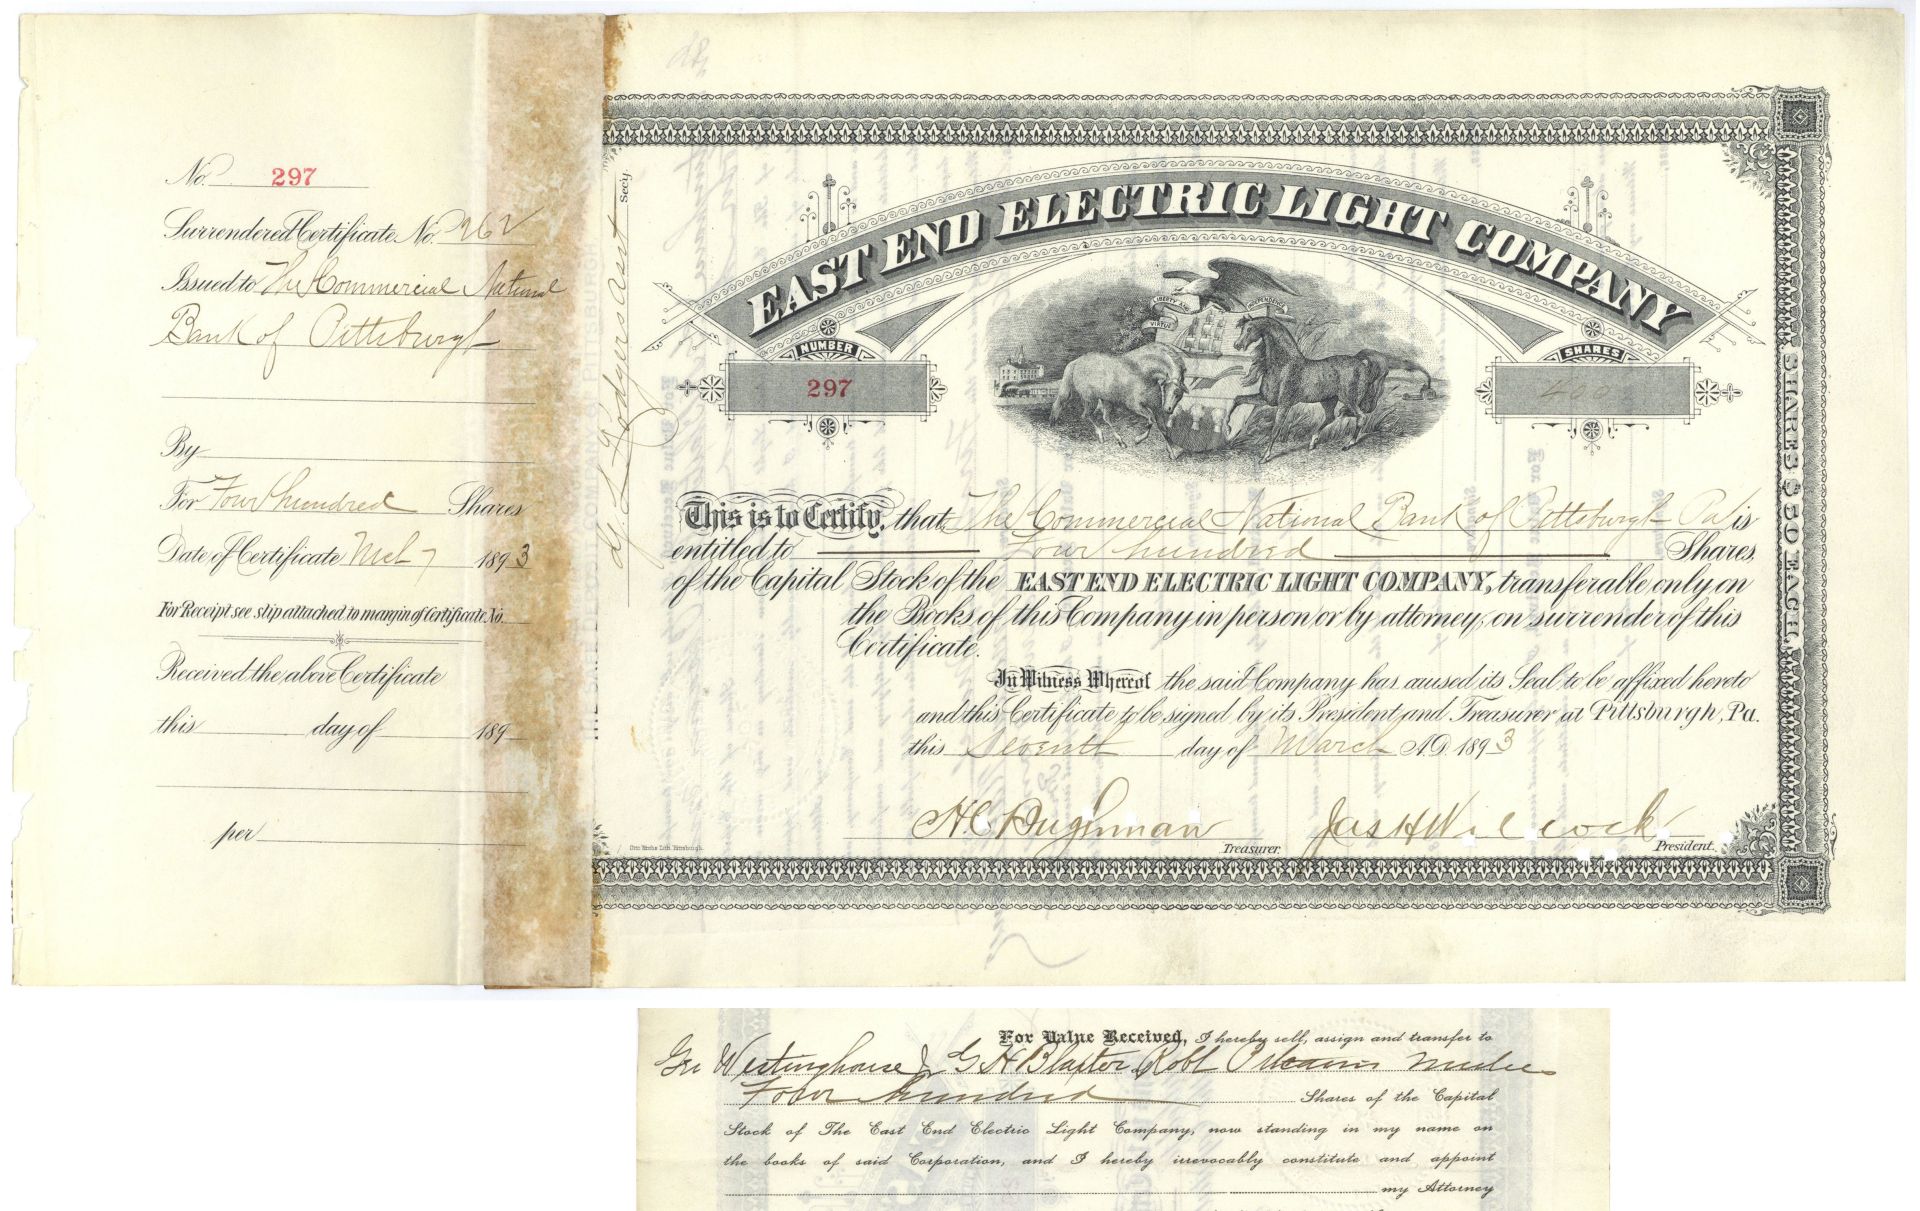 No. 297
Surrendered Certificate No. 262
Issued to The Commercial National
Bank of Pittsburgh
By
For Four hundred Shares
Date of Certificate Mch 7 1893
For Receipt see slip attached to margin of Certificate No.
Received the above Certificate
this day of 189
per
Rodgers Asst Secy.
EAST END ELECTRIC LIGHT COMPANY
LIBERTY AND INDEPENDENCE
VIRTUE
NUMBER
297
SHARES
400
SHARES $50 EACH.
This is to Certify, that The Commercial National Bank of Pittsburgh Pa is
entitled to Four hundred Shares,
of the Capital Stock of the EAST END ELECTRIC LIGHT COMPANY, transferable only on
the Books of this Company in person or by attorney, on surrender of this
Certificate.
In Witness Whereof the said Company has caused its Seal to be affixed hereto
and this Certificate to be signed by its President and Treasurer at Pittsburgh, Pa.
this Seventh day of March A.D. 1893
H C Bughman Treasurer.
Jas H Wilcock President.
Otto Krebs Lith. Pittsburgh.
For Value Received, I hereby sell, assign and transfer to
Geo Westinghouse Jr G H Blaxter Robt Pitcairn
Four hundred Shares of the Capital
Stock of The East End Electric Light Company, now standing in my name on
the books of said Corporation, and I hereby irrevocably constitute and appoint
my Attorney